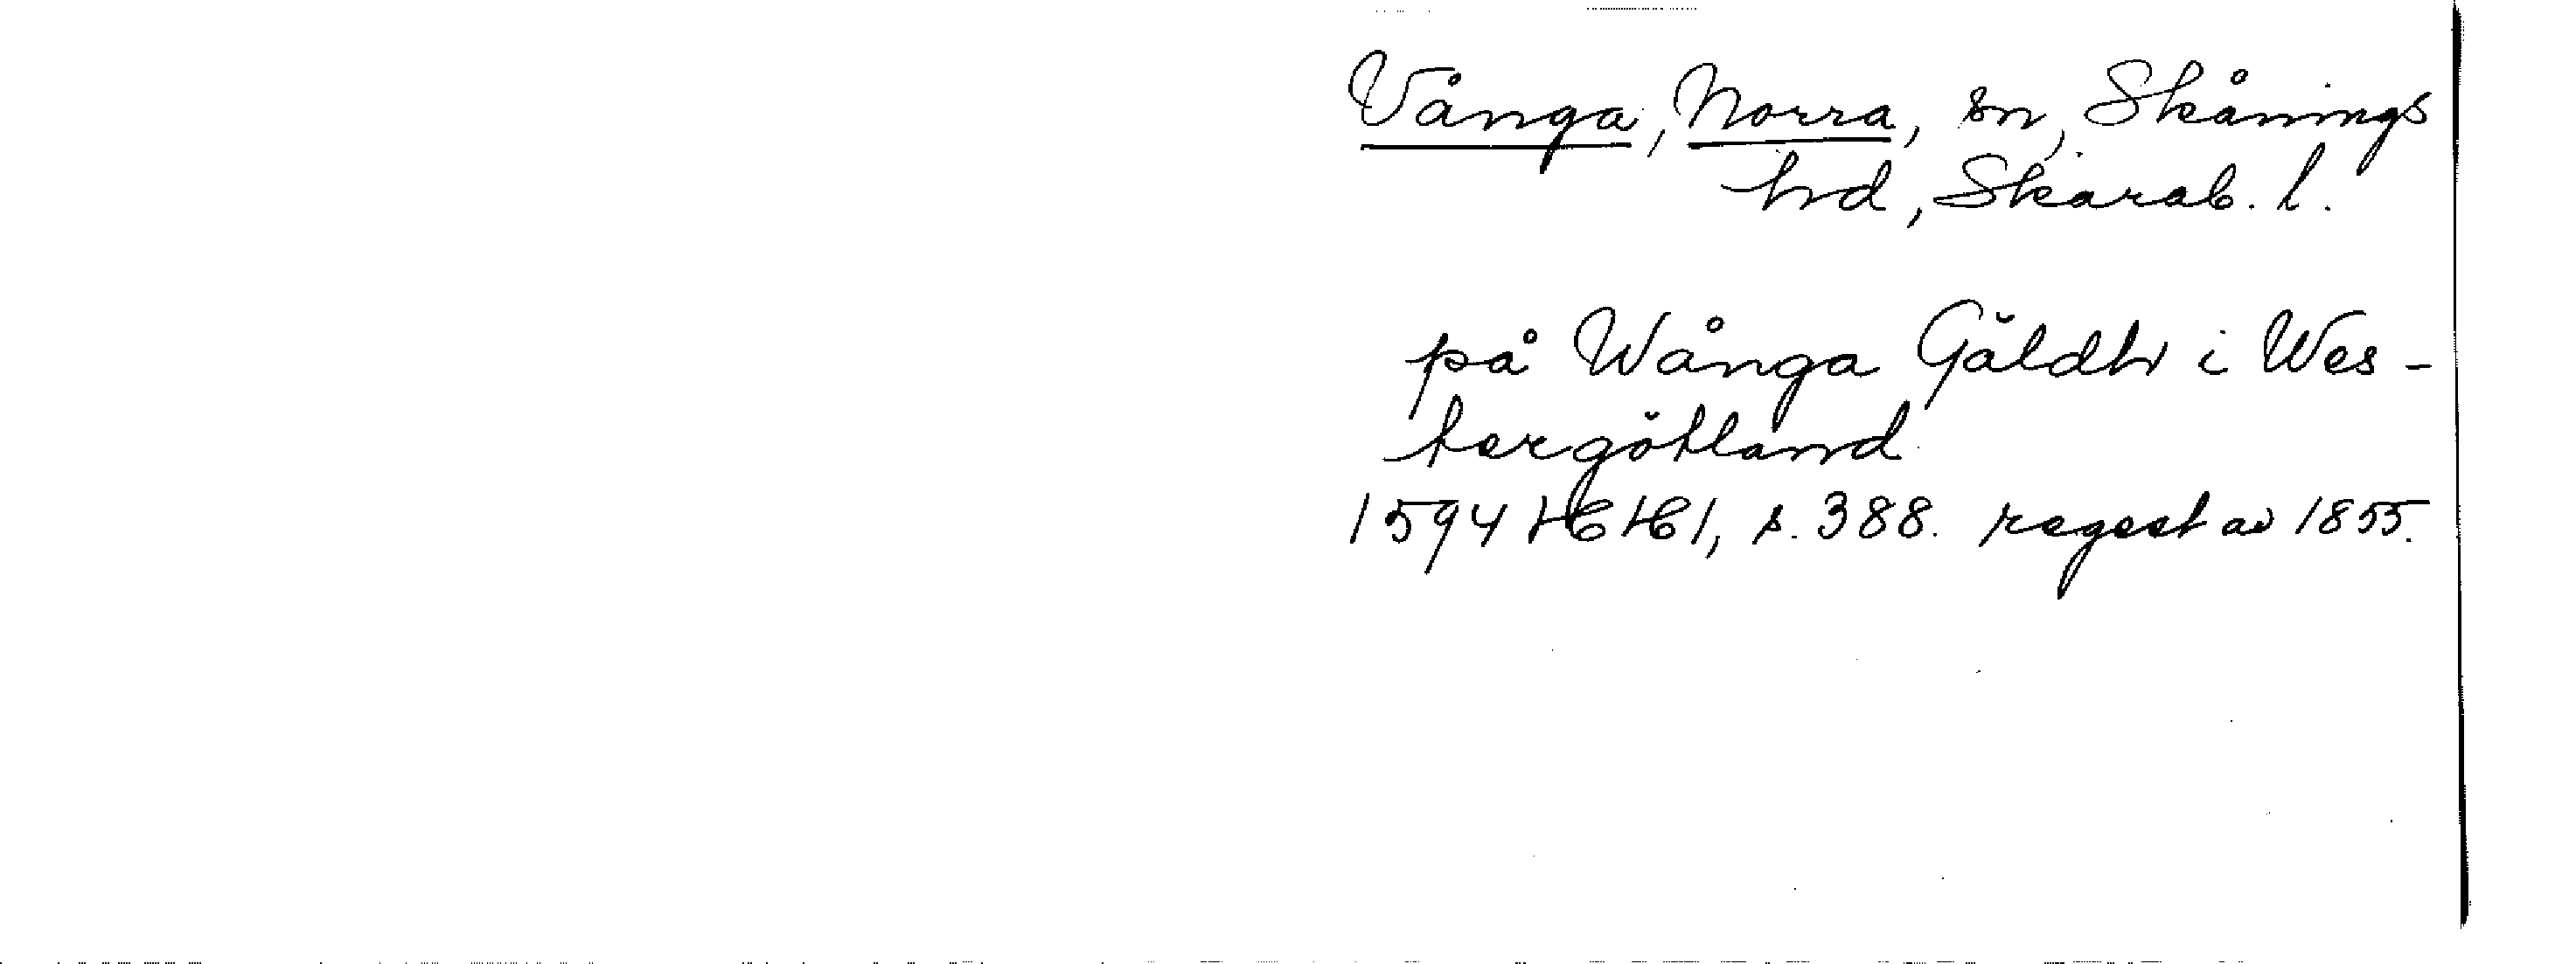 Vånga, Norra, sn, Skånings
hd, Skarab. l.
på Wånga Gäldh i Wes-
tergötland
1594 HH1, s. 388. regest av 1855.